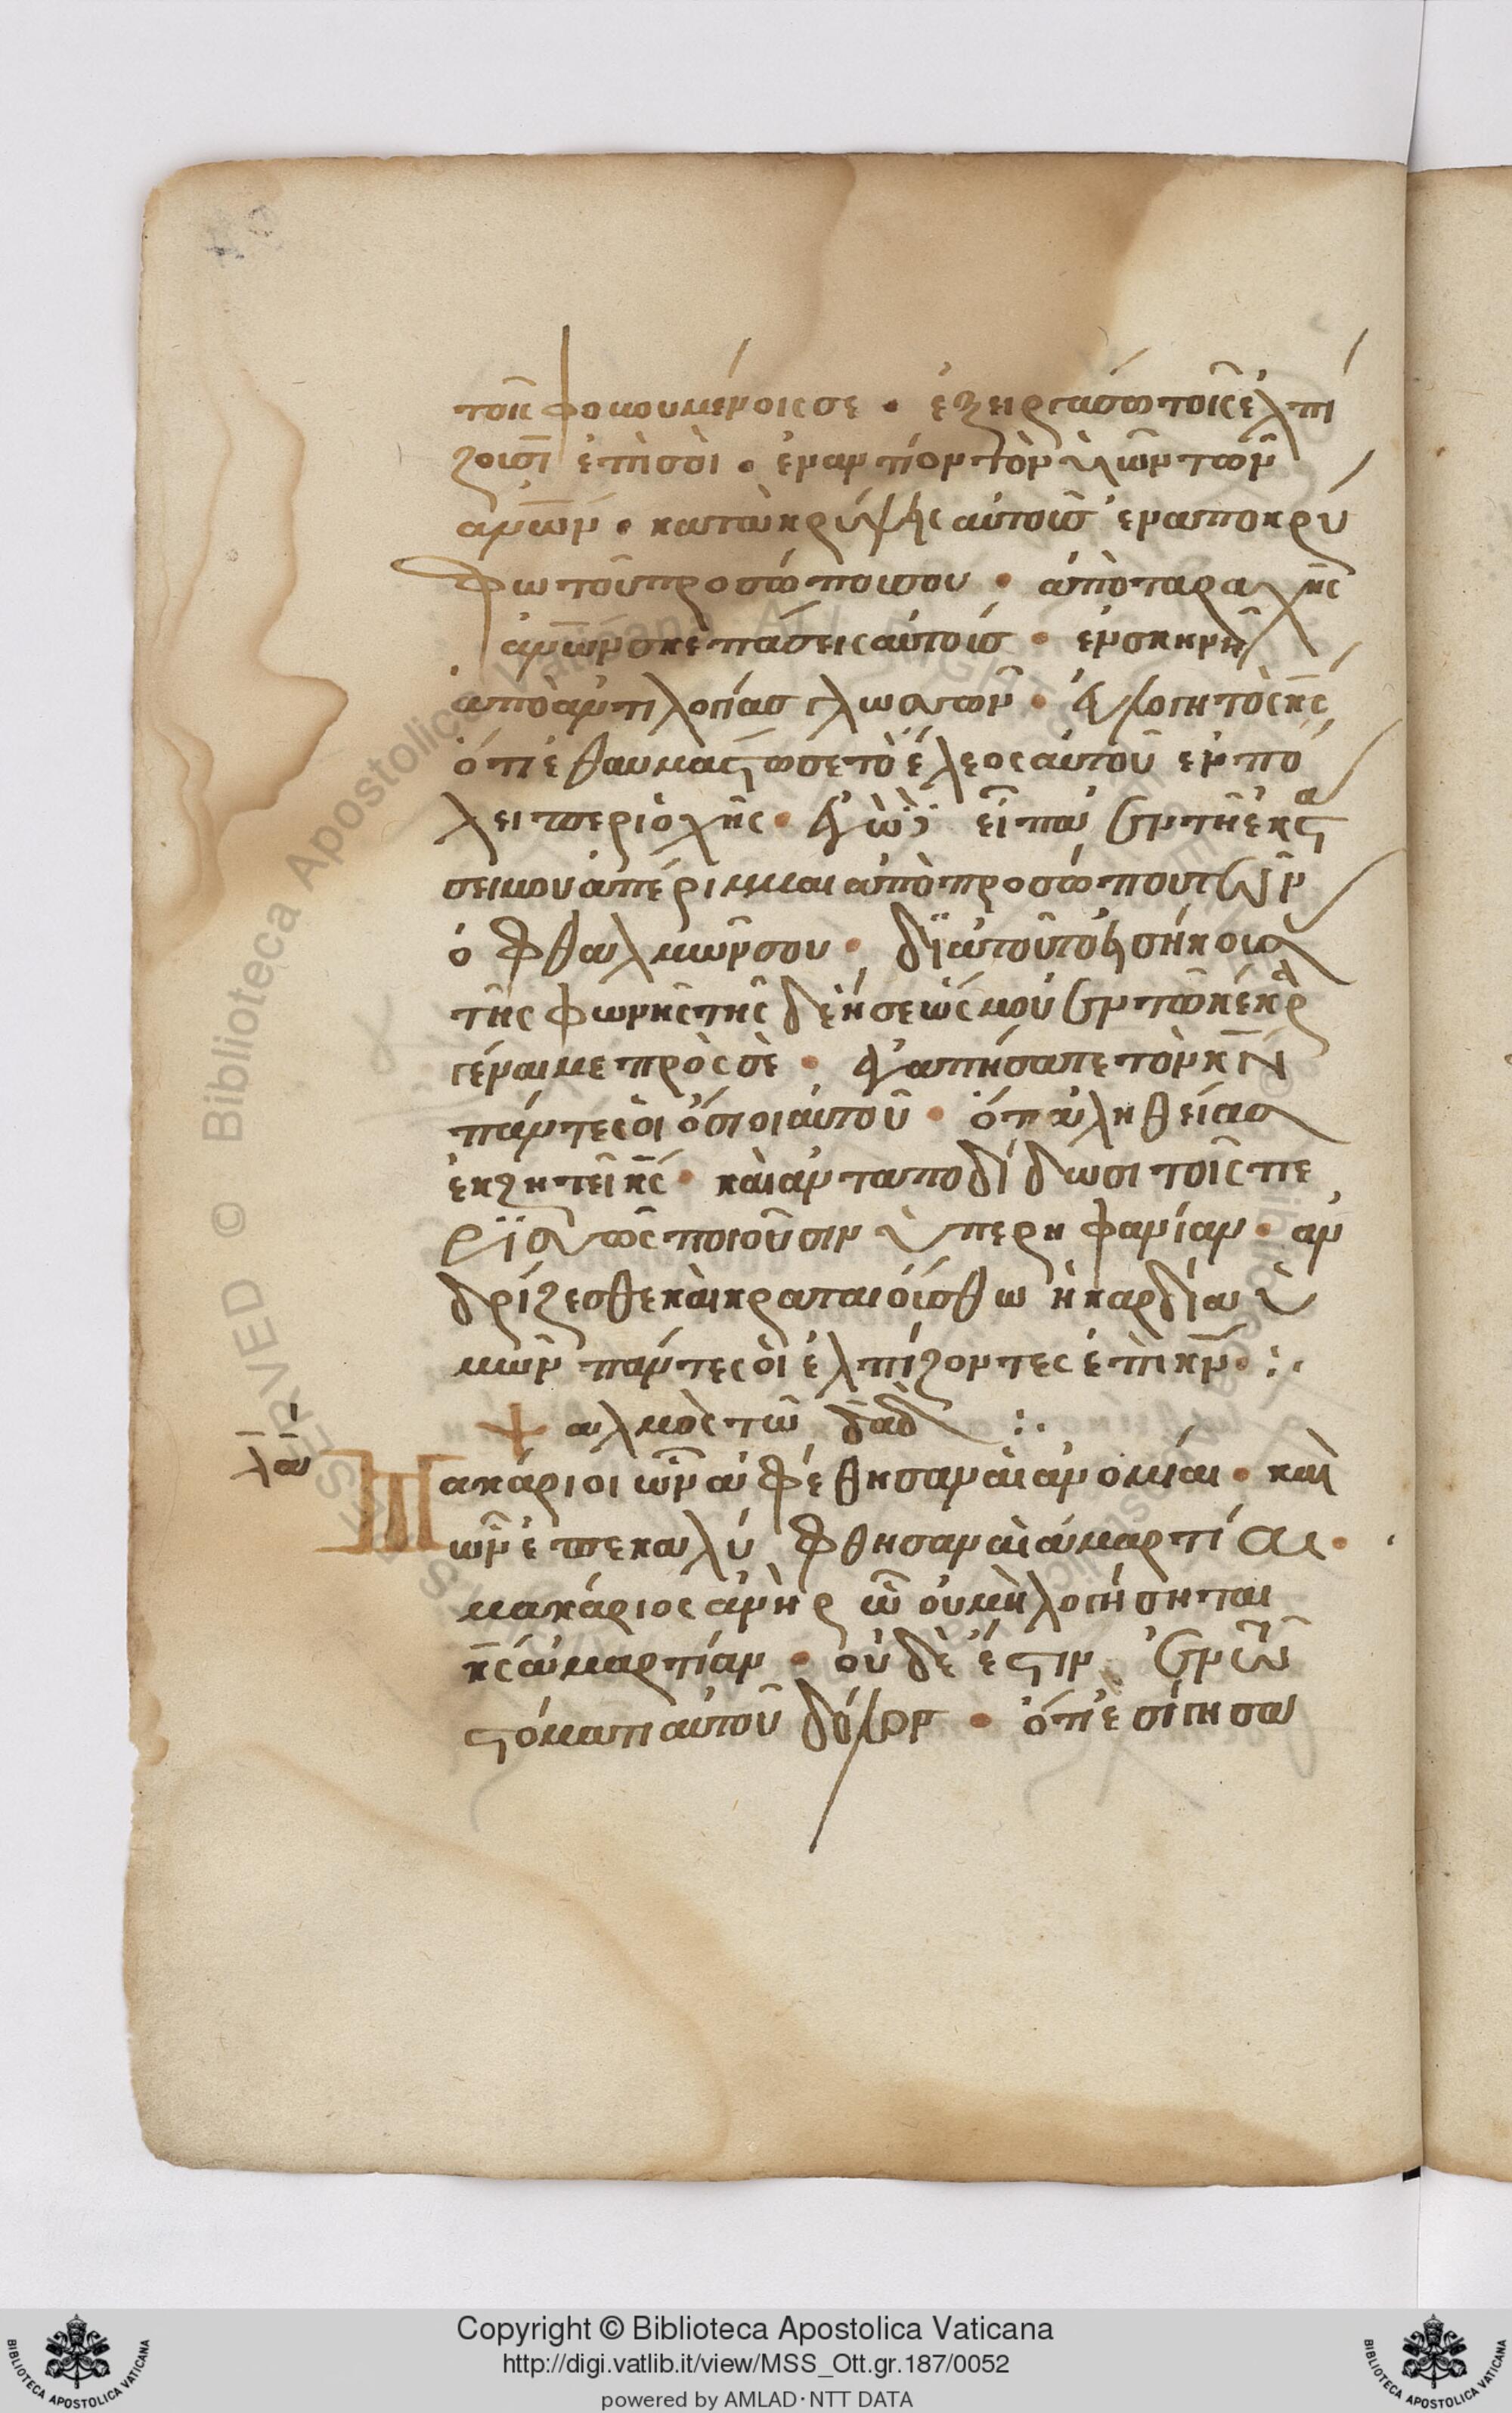 τοῖς φοβουμένοις σε · ἐξειργάσω τοῖς ἐλπί
ζουσῖ ἐπὶ σὲ · ἐναντίον τῶν ὑιῶν τῶν
ἀν̅ων · κατακρύψεις αὐτοὺς ἐν ἀποκρύ
φω τοῦ προσώπου σου · ἀπὸ ταραχῆς
ἀν̅ων σκεπάσεις αὐτούς · ἐν σκηνῆ
ἀπὸ ἀντιλογίας γλωσσῶν · ἐυλογητὸς κ̅ς
ὅτι ἐθαυμάστωσε τὸ ἔλεος αὐτοῦ ἐν πό
λει περιοχῆς · ἐγὼ δὲ εἶπα ἐν τῆ ἐκστά
σει μου ἀπέριμμαι ἀπὸ προσώπου τῶν
ὀφθαλμῶν σου · διατοῦτο εἰσήκουσας
τῆς φωνῆς τῆς δεήσεώς μου ἐν τῶ κεκρα
γέναι με πρὸς σὲ · ἀγαπήσατε τὸν κ̅ν
πάντες ὁι ὅσιοι αὐτοῦ · ὅτι ἀληθείας
ἐκζητεῖ κ̅ς · καὶ ἀνταποδίδωσι τοῖς πε
ρϊσσῶς ποιοῦσιν ὑπερηφανίαν · ἀν
δρίζεσθε καὶ κραταιούσθω ἡ καρδία ὑ
μῶν πάντες ὁι ἐλπίζοντες ἐπὶ κ̅ν · :·
ψαλμὸς τῶ δα̅δ :·
λ̅α̅
Μακάριοι ὧν ἀφέθησαν ἁι ἀνομίαι · καὶ
ὧν ἐπεκαλύφθησαν ἁι ἁμαρτίαι ·
μακάριος ἀνὴρ ὧ οὐ μὴ λογήσηται
κ̅ς ἁμαρτίαν · οὐδὲ ἔστιν ἐν τῶ
στόματι αὐτοῦ δόλος · ὅτι ἐσίγησα
Copyright © Biblioteca Apostolica Vaticana
http://digi.vatlib.it/view/MSS_Ott.gr.187/0052
powered by AMLAD·NTT DATA